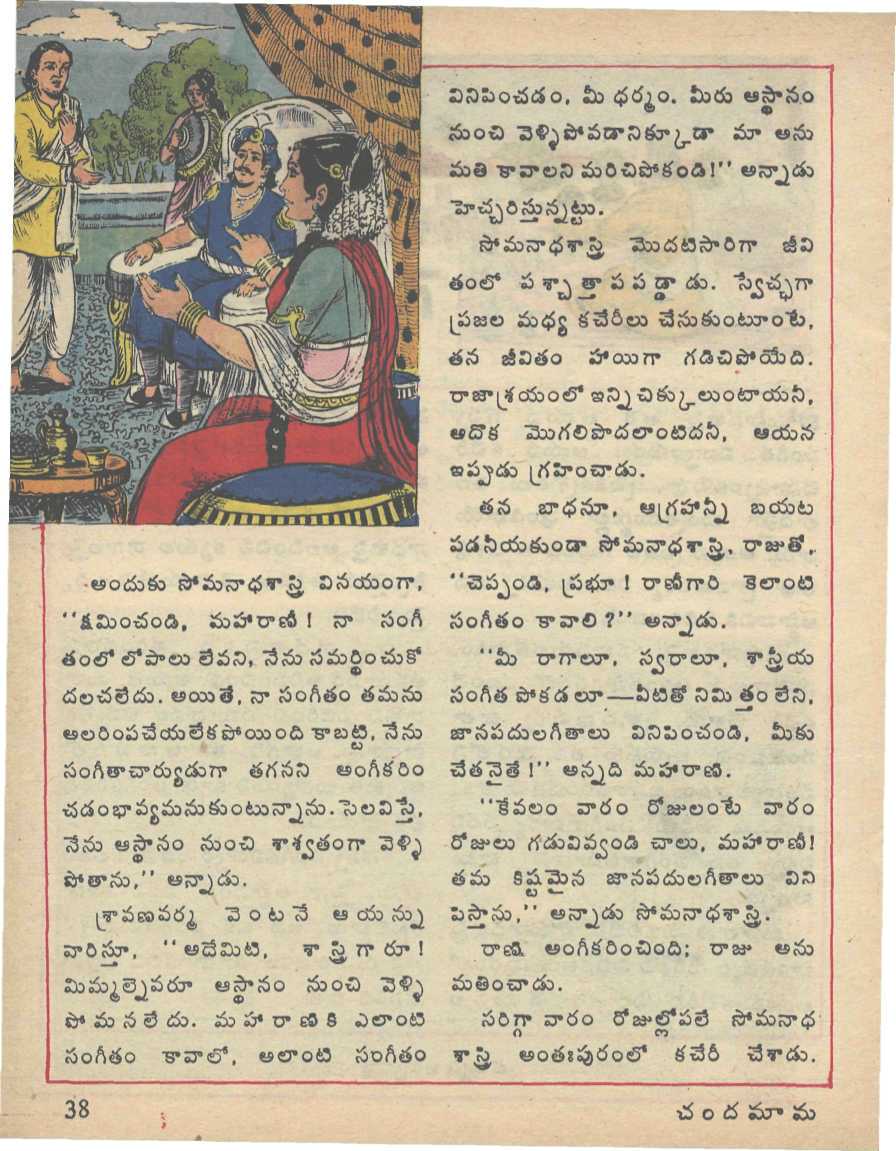 అందుకు సోమనాధశాస్త్రి వినయంగా,
‘‘క్షమించండి, మహారాణీ! నా సంగీ
తంలో లోపాలు లేవని, నేను సమర్థించుకో
దలచలేదు. అయితే, నా సంగీతం తమను
అలరింపచేయలేకపోయింది కాబట్టి, నేను
సంగీతాచార్యుడుగా తగనని అంగీకరిం
చడంభావ్యమనుకుంటున్నాను. సెలవిస్తే,
నేను ఆస్థానం నుంచి శాశ్వతంగా వెళ్ళి
పోతాను,’’ అన్నాడు.
శ్రావణవర్మ వెంటనే ఆయన్ను
వారిస్తూ, ‘‘అదేమిటి, శాస్త్రిగారూ!
మిమ్మల్నెవరూ ఆస్థానం నుంచి వెళ్ళి
పోమనలేదు. మహారాణికి ఎలాంటి
సంగీతం కావాలో, అలాంటి సంగీతం
వినిపించడం, మీ ధర్మం. మీరు ఆస్థానం
నుంచి వెళ్ళిపోవడానిక్కూడా మా అను
మతి కావాలని మరిచిపోకండి!’’ అన్నాడు
హెచ్చరిస్తున్నట్టు.
సోమనాధశాస్త్రి మొదటిసారిగా జీవి
తంలో పశ్చాత్తాపపడ్డాడు. స్వేచ్ఛగా
ప్రజల మధ్య కచేరీలు చేసుకుంటూంటే,
తన జీవితం హాయిగా గడిచిపోయేది.
రాజాశ్రయంలో ఇన్నిచిక్కులుంటాయనీ,
అదొక మొగలిపొదలాంటిదనీ, ఆయన
ఇప్పుడు గ్రహించాడు.
తన బాధనూ, ఆగ్రహాన్నీ బయట
పడనీయకుండా సోమనాధశాస్త్రి, రాజుతో,
‘‘చెప్పండి, ప్రభూ! రాణీగారి కెలాంటి
సంగీతం కావాలి?’’ అన్నాడు.
‘‘మీ రాగాలూ, స్వరాలూ, శాస్త్రీయ
సంగీత పోకడలూ—వీటితో నిమిత్తం లేని,
జానపదులగీతాలు వినిపించండి, మీకు
చేతనైతే!’’ అన్నది మహారాణి.
‘‘కేవలం వారం రోజులంటే వారం
రోజులు గడువివ్వండి చాలు, మహారాణీ!
తమ కిష్టమైన జానపదులగీతాలు విని
పిస్తాను,’’ అన్నాడు సోమనాధశాస్త్రి.
రాణి అంగీకరించింది; రాజు అను
మతించాడు.
సరిగ్గా వారం రోజుల్లోపలే సోమనాధ
శాస్త్రి అంతఃపురంలో కచేరీ చేశాడు.
38
చందమామ